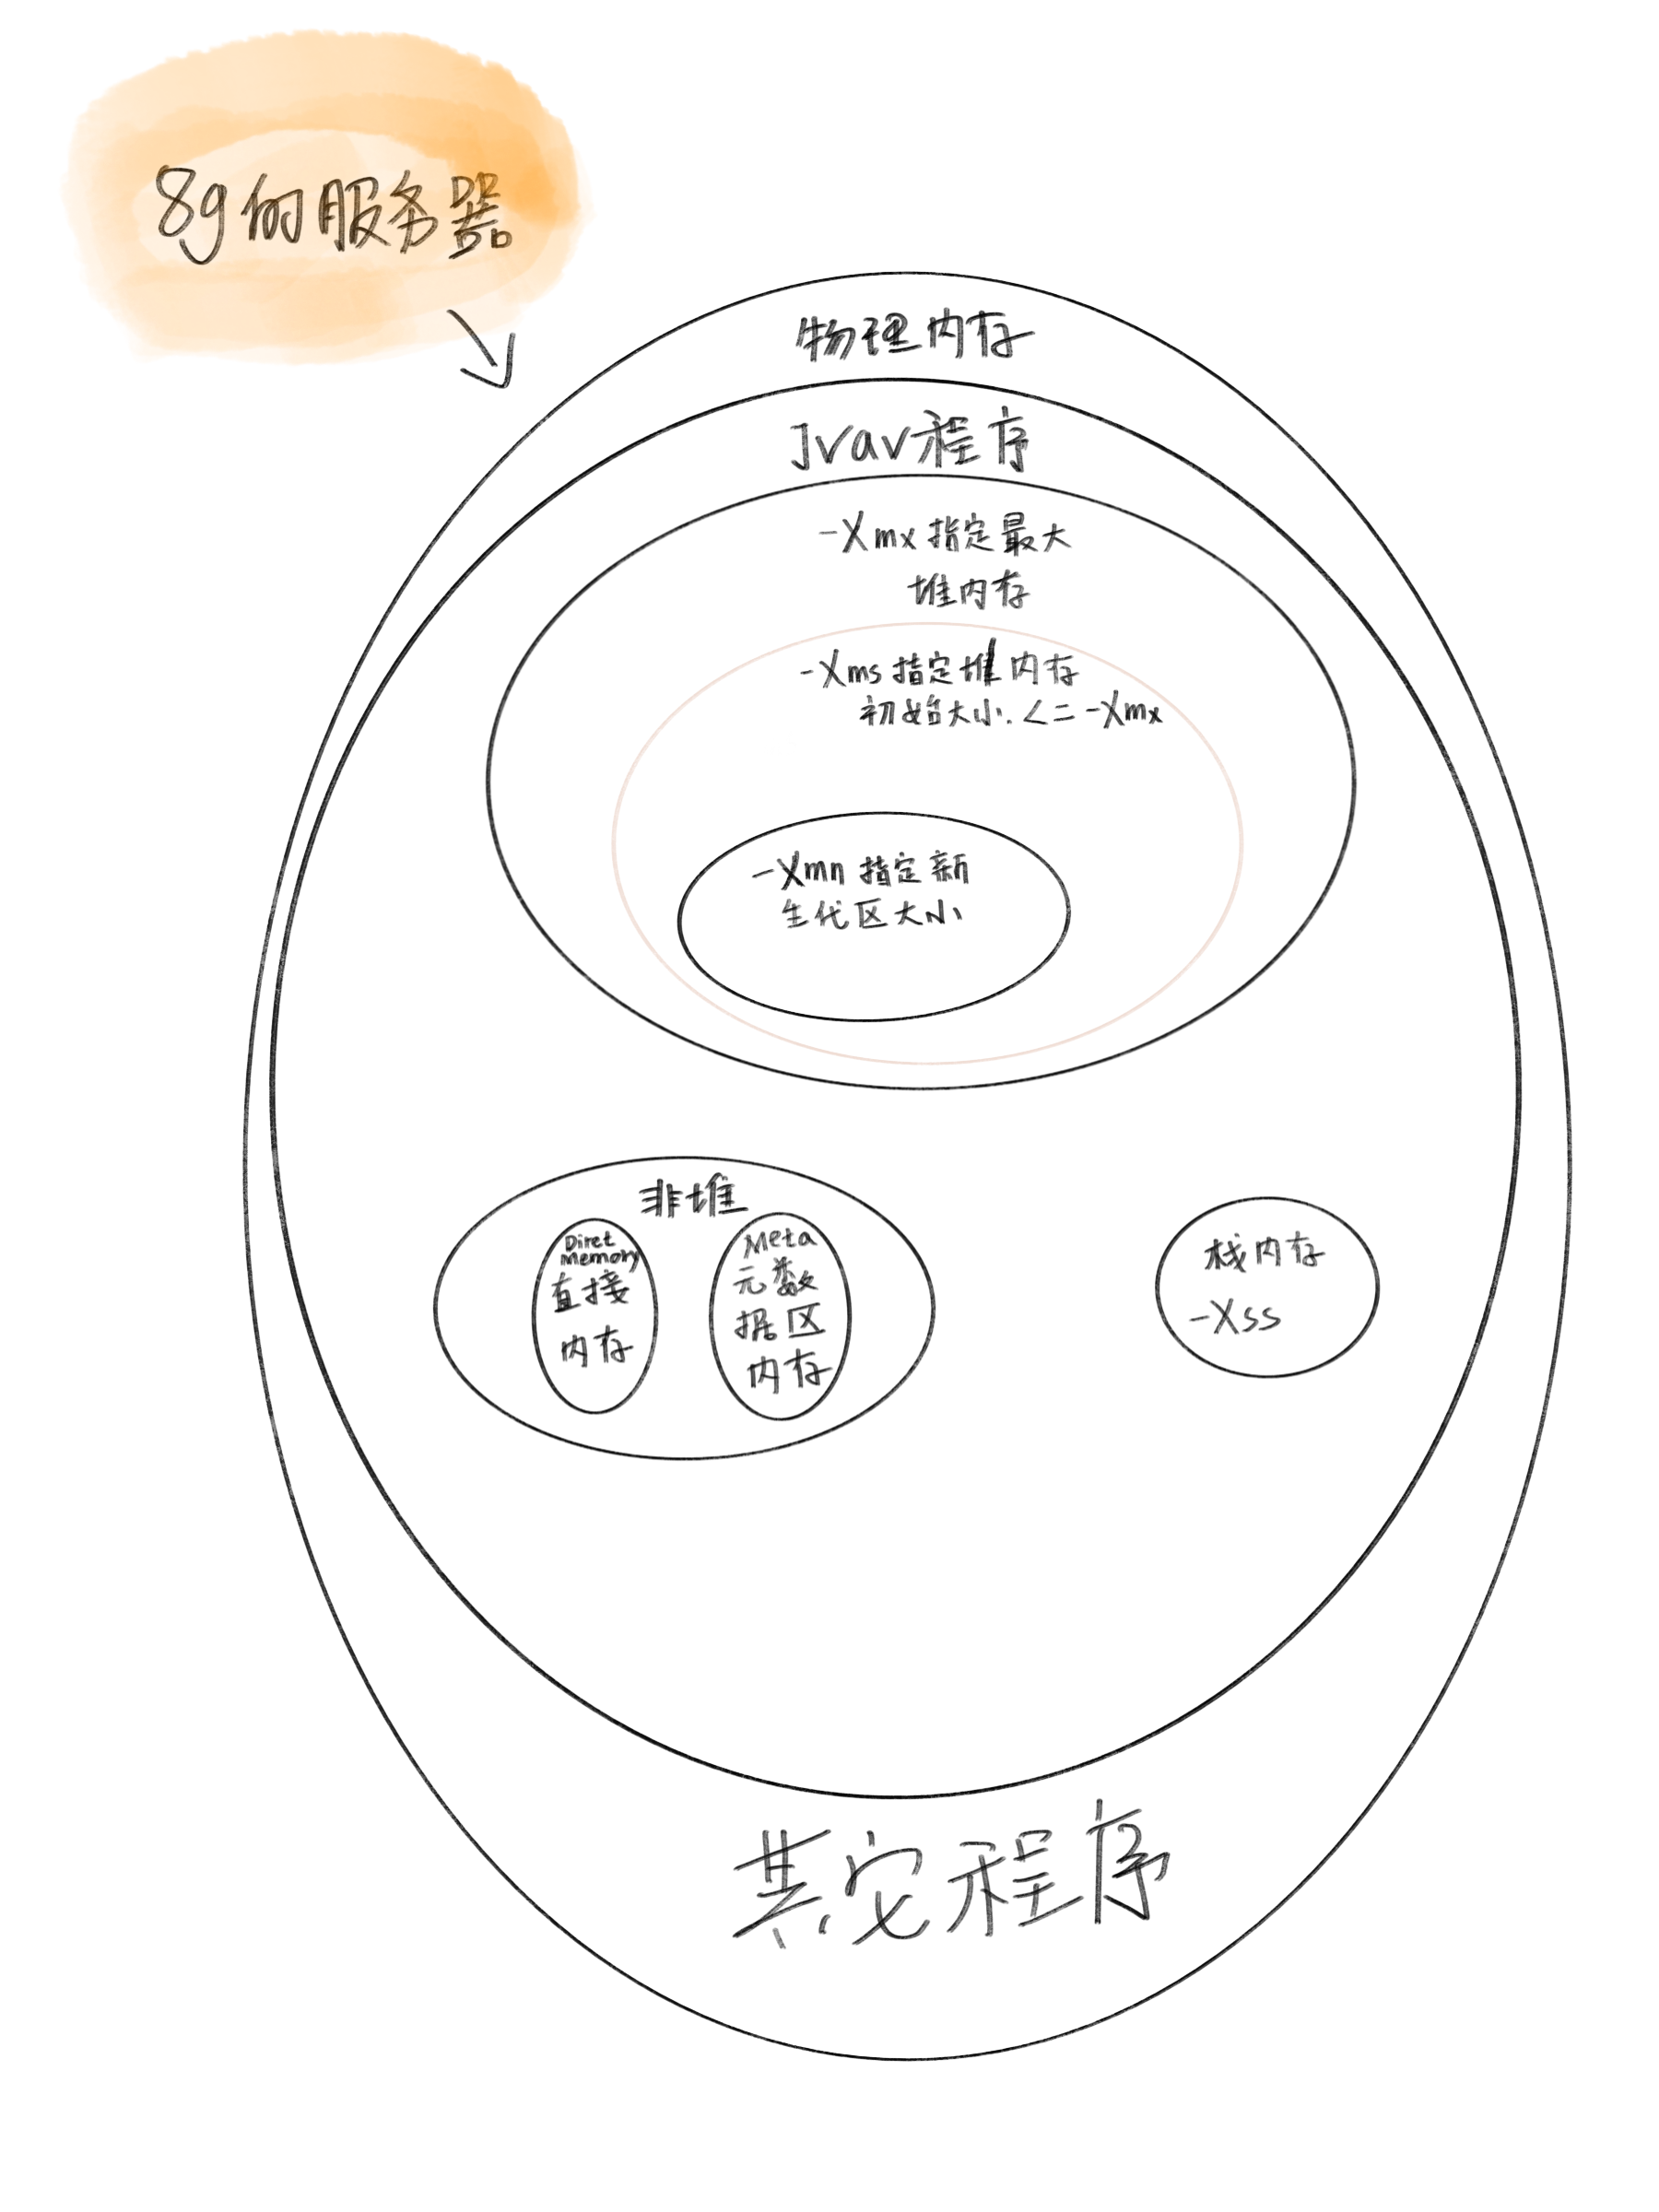 8g的服务器
物理内存
Jvav程序
-Xmx指定最大
堆内存
-Xms指定堆内存
初始大小.<=-Xmx
-Xmn指定新
生代区大小
非堆
Diret
Memory
直接
内存
Meta
元数
据区
内存
栈内存
-Xss
其它程序